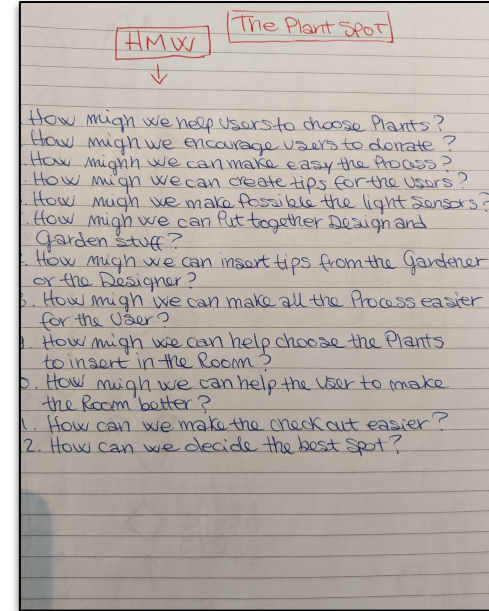 The Plant Spot
HMW
How migh we help users to choose Plants?
How migh we encourage users to donate?
How mighh we can make easy the Process?
How migh we can create tips for the Users?
How migh we make Possible the light Sensors?
How migh we can Put together Design and
Garden stuff?
How migh we can insert tips from the Gardener
or the Designer?
How migh we can make all the Process easier
for the User?
How migh we can help choose the Plants
to insert in the Room?
0. How migh we can help the User to make
the Room better?
1. How can we make the check out easier?
2. How can we decide the best Spot?